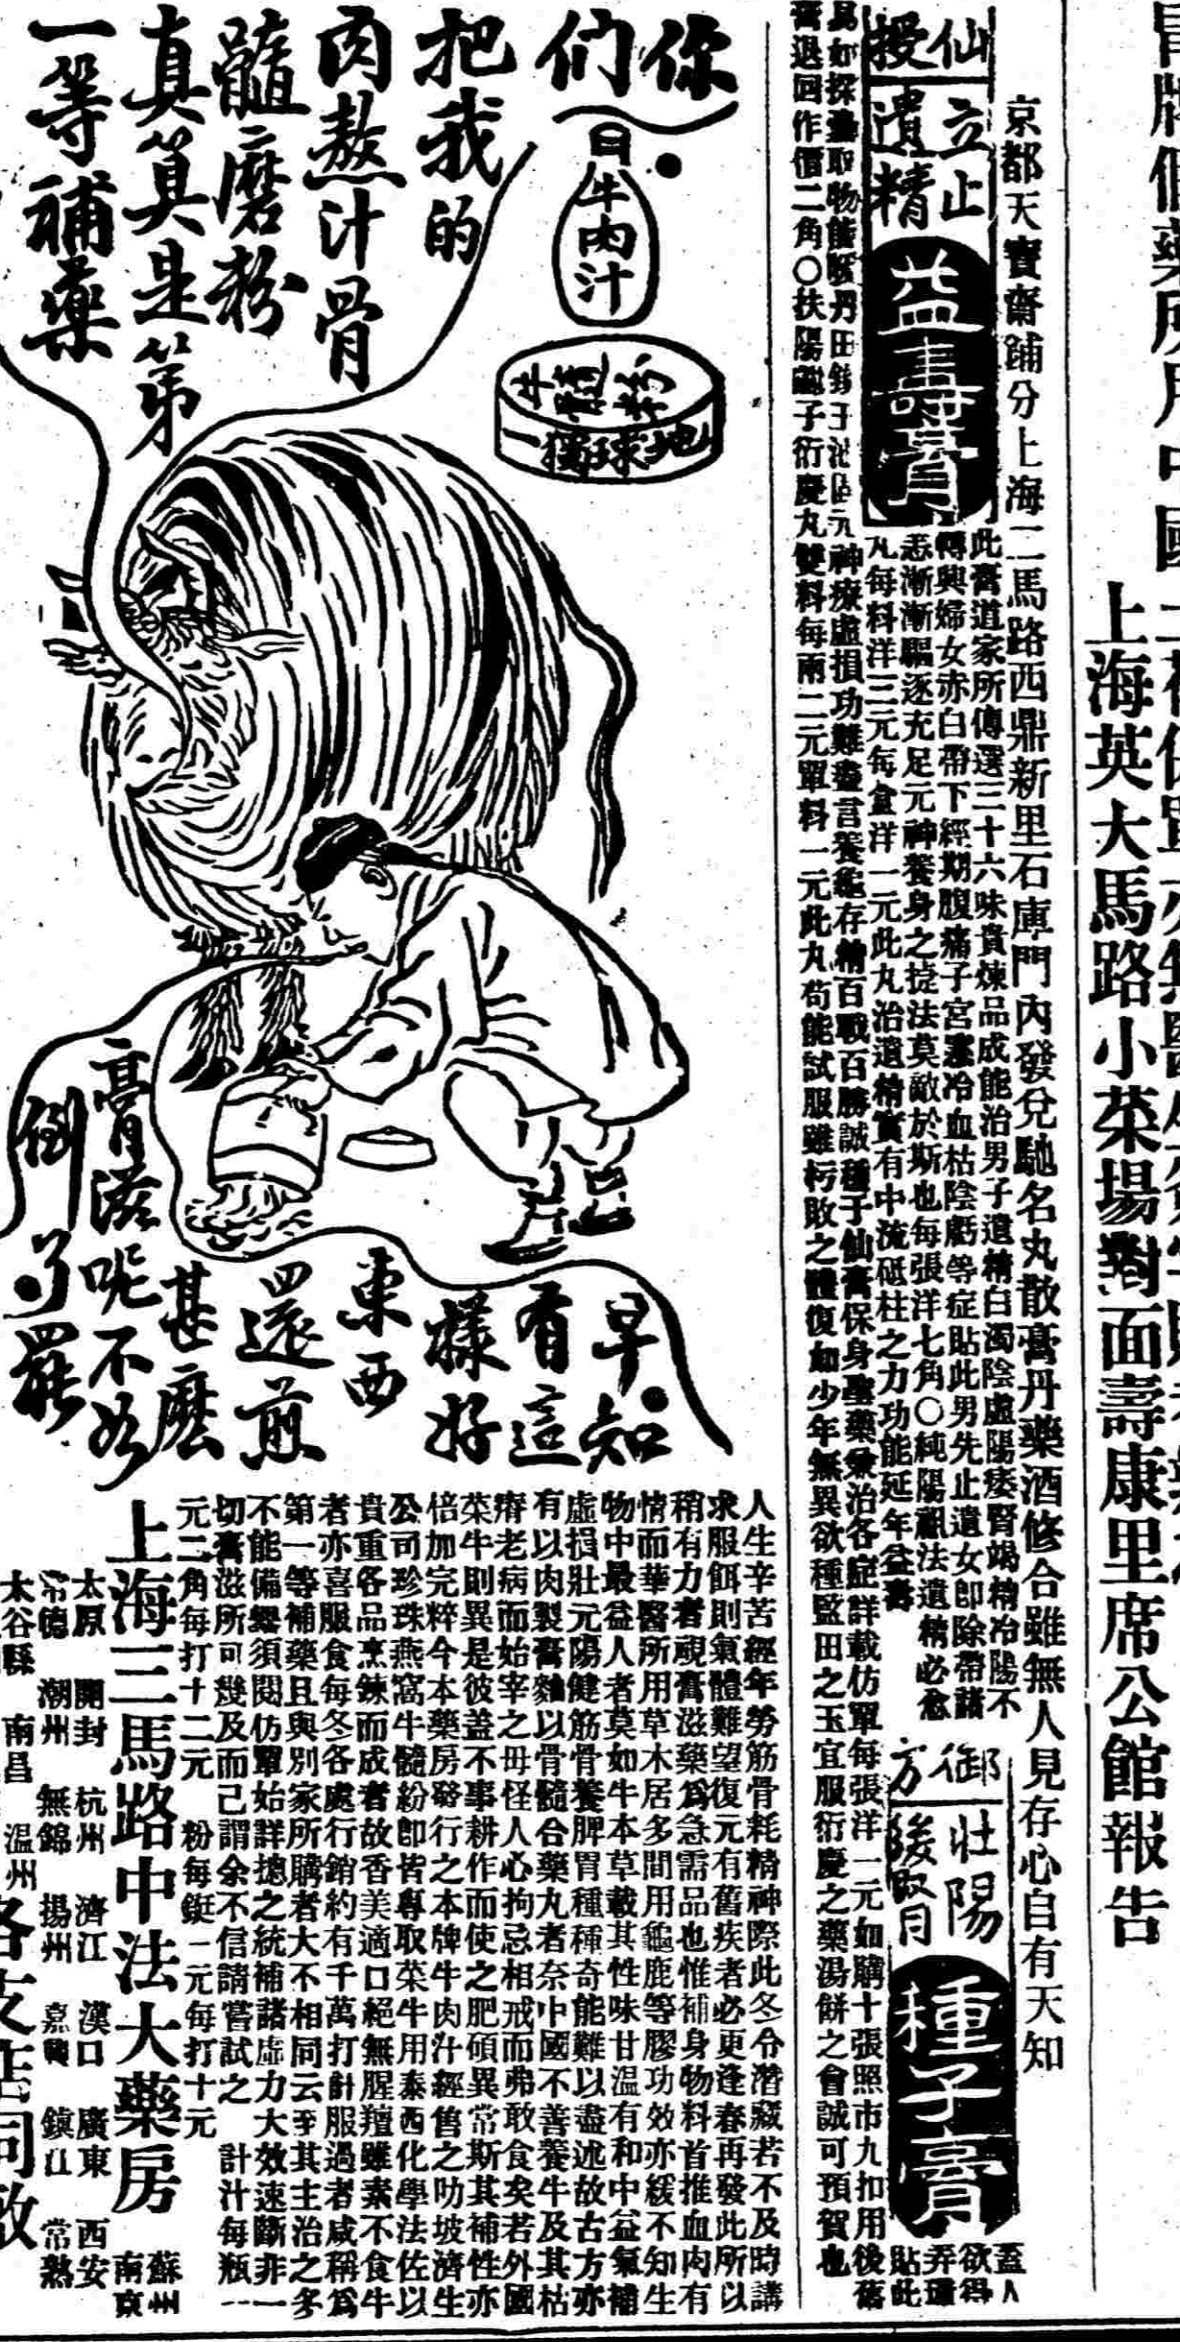 上海英大馬路小菜場對面壽康里席公館報告
京都天寶齋鋪分上海二馬路西鼎新里石庫門內發兌馳名丸散膏丹藥酒修合雖無人見存心自有天知
仙授
立止遺精
益壽膏
此膏道家所傳選三十六味貴煉品成能治男子遺精白濁陰虛陽痿腎竭精冷陽不
轉興婦女赤白帶下經期腹痛子宮寒冷血枯陰虧等症貼此男先止遺女即除帶諸
恙漸漸驅逐充足元神養身之捷法莫敵於斯也每張洋七角〇純陽祖法遺精必愈
丸每料洋三元每盒洋一元此丸治遺精實有中流砥柱之力功能延年益壽
御方
壯陽
種子膏
蓋人
欲得
弄璋
貼此
神療虛損功難盡言養龜存精百戰百勝誠種子仙膏保身聖藥兼治各症詳載仿單每張洋一元如購十張照市九扣用後舊
膏退回作價二角〇扶陽種子衍慶丸雙料每兩二元單料一元此丸苟能試服雖朽敗之體復如少年無異欲種藍田之玉宜服衍慶之藥湯餅之會誠可預賀也
你们
把我的
肉熬汁骨
髓磨粉
真算是第
一等補藥
牛肉汁
牛髓粉
地球獨一
早知
有這
樣好
東西
還煎
甚麽
膏滋呢不如
倒了罷
人生辛苦經年勞筋骨耗精神際此冬令潛藏若不及時講
求服餌則氣體難望復元有舊疾者必更逢春再發此所以
稍有力者視膏滋藥爲急需品也惟補身物料首推血肉有
情而華醫所用草木居多間用龜鹿等膠功效亦緩不知生
物中最益人者莫如牛本草載其性味甘溫有和中益氣補
虛損壯元陽健筋骨養脾胃種種奇能難以盡述故古方亦
有以肉製膏麯以骨髓合藥丸者奈中國不善養牛及其枯
瘠老病而始宰之毋怪人心拘忌相戒而弗敢食矣若外國
菜牛則異是彼蓋不事耕作而使之肥碩異常斯其補性亦
倍加完粹今本藥房發行之本牌牛肉汁經售之叻坡濟生
公司珍珠燕窩牛髓紛即皆專取菜牛用泰西化學法佐以
貴重各品烹鍊而成者故香美適口絕無腥羶雖素不食牛
者亦喜服食每冬各處行銷約有千萬打計服過者咸稱爲
第一等補藥且與別家所購者大不相同云至其主治之多
不能備舉須閱仿單始詳摠之統補諸虛力大效速斷非一
切膏滋所可幾及而已謂余不信請嘗試之 計汁每瓶一
元二角每打十二元 粉每鋌一元每打十元
上海三馬路中法大藥房
蘇州
南京
太原 開封 杭州 濟江 漢口 廣東 西安
常德 潮州 無錫 揚州 嘉興 鎮江 常熟
太谷縣 南昌 溫州
各支店同啟